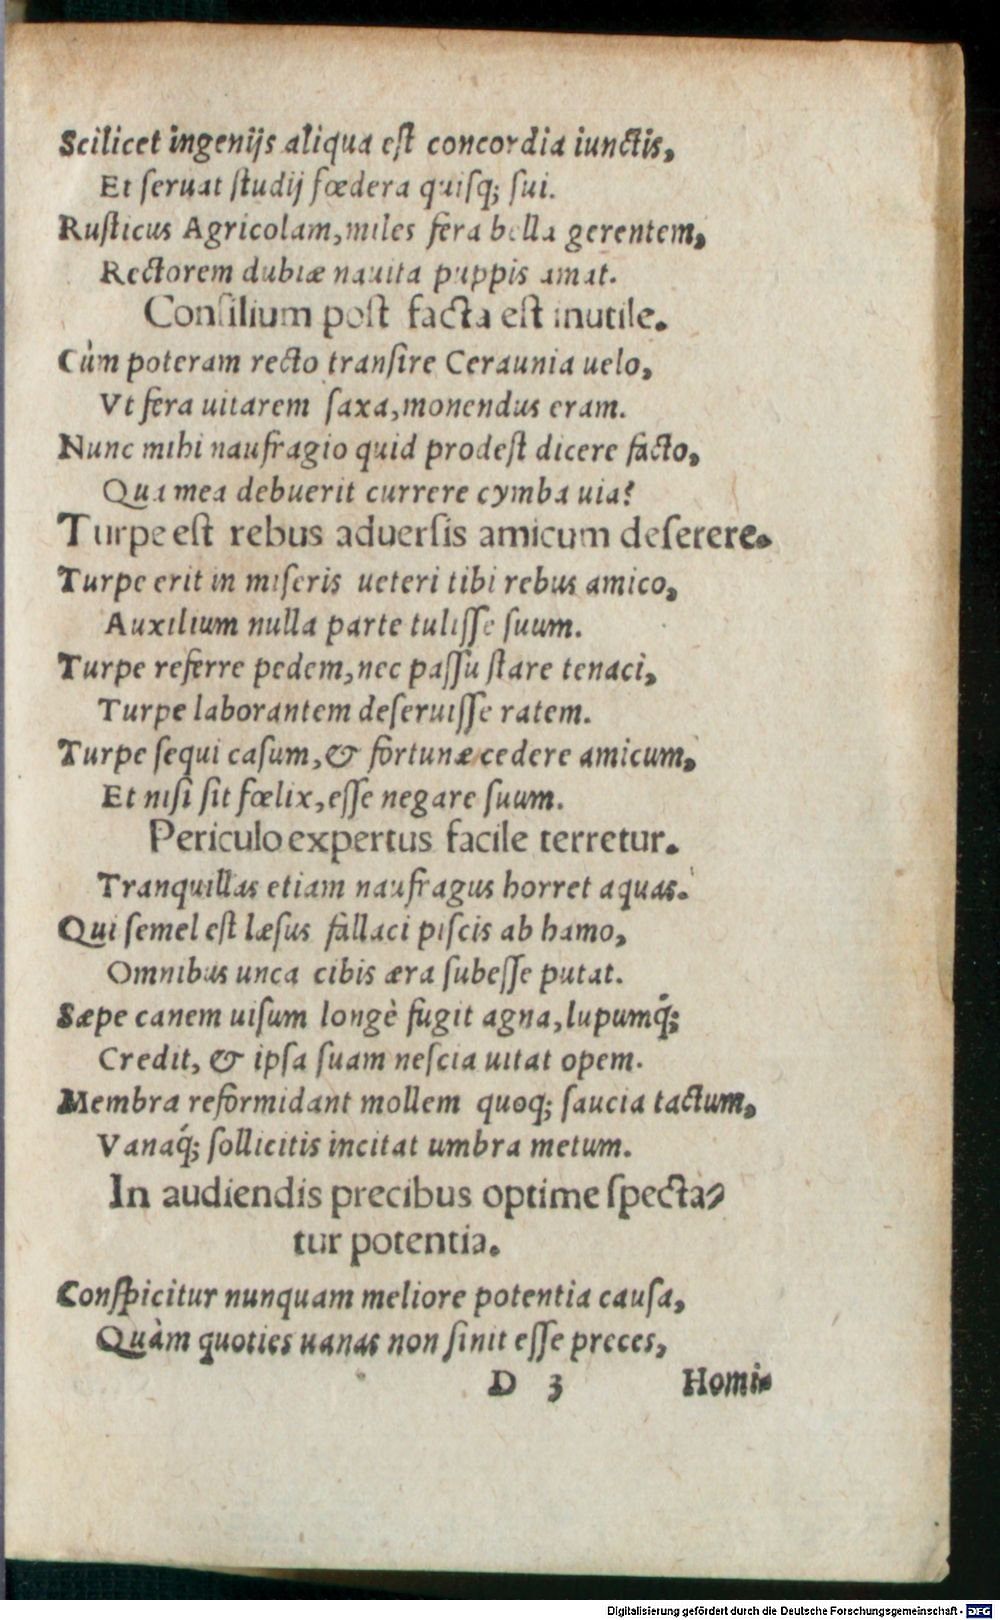 Scilicet ingenijs aliqua eſt concordia iunctis,
Et ſeruat ſtudij fœdera quiſq; ſui.
Ruſticus Agricolam, miles fera bella gerentem,
Rectorem dubiæ nauita puppis amat.
Conſilium poſt facta eſt inutile.
Cùm poteram recto tranſire Ceraunia uelo,
Vt fera uitarem ſaxa, monendus eram.
Nunc mihi naufragio quid prodeſt dicere facto,
Qua mea debuerit currere cymba uia?
Turpe eſt rebus aduerſis amicum deſerere.
Turpe erit in miſeris ueteri tibi rebus amico,
Auxilium nulla parte tuliſſe ſuum.
Turpe referre pedem, nec paſſu ſtare tenaci,
Turpe laborantem deſeruiſſe ratem.
Turpe ſequi caſum, & fortunæ cedere amicum,
Et niſi ſit fœlix, eſſe negare ſuum.
Periculo expertus facile terretur.
Tranquillas etiam naufragus horret aquas.
Qui ſemel eſt læſus fallaci piſcis ab hamo,
Omnibus unca cibis æra ſubeſſe putat.
Sæpe canem uiſum longè fugit agna, lupumq́;
Credit, & ipſa ſuam neſcia uitat opem.
Membra reformidant mollem quoq; ſaucia tactum,
Vanaq́; ſollicitis incitat umbra metum.
In audiendis precibus optime ſpecta⸗
tur potentia.
Conſpicitur nunquam meliore potentia cauſa,
Quàm quoties uanas non ſinit eſſe preces,
D 3 Homi⸗
Digitalisierung gefördert durch die Deutsche Forschungsgemeinschaft - DFG